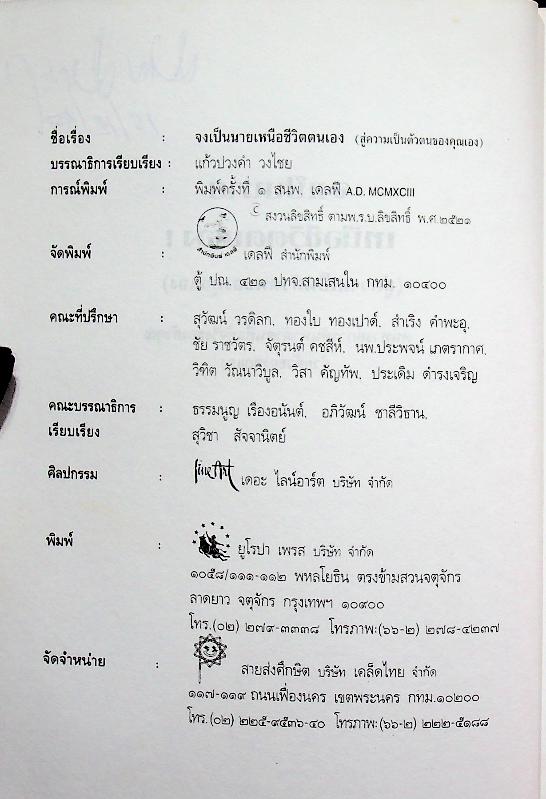 ชื่อเรื่อง : จงเป็นนายเหนือชีวิตตนเอง (สู่ความเป็นตัวตนของคุณเอง)
บรรณาธิการเรียบเรียง : แก้วปวงคำ วงไชย
การณ์พิมพ์ : พิมพ์ครั้งที่ ๑ สนพ. เดลฟี A.D. MCMXCIII
สงวนลิขสิทธิ์ ตามพ.ร.บ.ลิขสิทธิ์ พ.ศ.๒๕๒๑
จัดพิมพ์ : เดลฟี สำนักพิมพ์
ตู้ ปณ. ๔๒๑ ปทจ.สามเสนใน กทม. ๑๐๔๐๐
คณะที่ปรึกษา : สุวัฒน์ วรดิลก, ทองใบ ทองเปาด์, สำเริง คำพะอุ,
ชัย ราชวัตร, จัตุรนต์ คชสีห์, นพ.ประพจน์ เภตรากาศ,
วิฑิต วัณนาวิบูล, วิสา คัญทัพ, ประเดิม ดำรงเจริญ
คณะบรรณาธิการ : ธรรมนูญ เรืองอนันต์, อภิวัฒน์ ชาลีวิธาน,
เรียบเรียง สุวิชา สัจจานิตย์
ศิลปกรรม : fine Art เดอะ ไลน์อาร์ต บริษัท จำกัด
พิมพ์ : ยูโรปา เพรส บริษัท จำกัด
๑๐๕๘/๑๑๑-๑๑๒ พหลโยธิน ตรงข้ามสวนจตุจักร
ลาดยาว จตุจักร กรุงเทพฯ ๑๐๙๐๐
โทร.(๐๒) ๒๗๙-๓๓๓๘ โทรภาพ:(๖๖-๒) ๒๗๘-๔๒๓๗
จัดจำหน่าย : สายส่งศึกษิต บริษัท เคล็ดไทย จำกัด
๑๑๗-๑๑๙ ถนนเฟื่องนคร เขตพระนคร กทม.๑๐๒๐๐
โทร.(๐๒) ๒๒๕-๙๕๓๖-๔๐ โทรภาพ:(๖๖-๒) ๒๒๒-๕๑๘๘